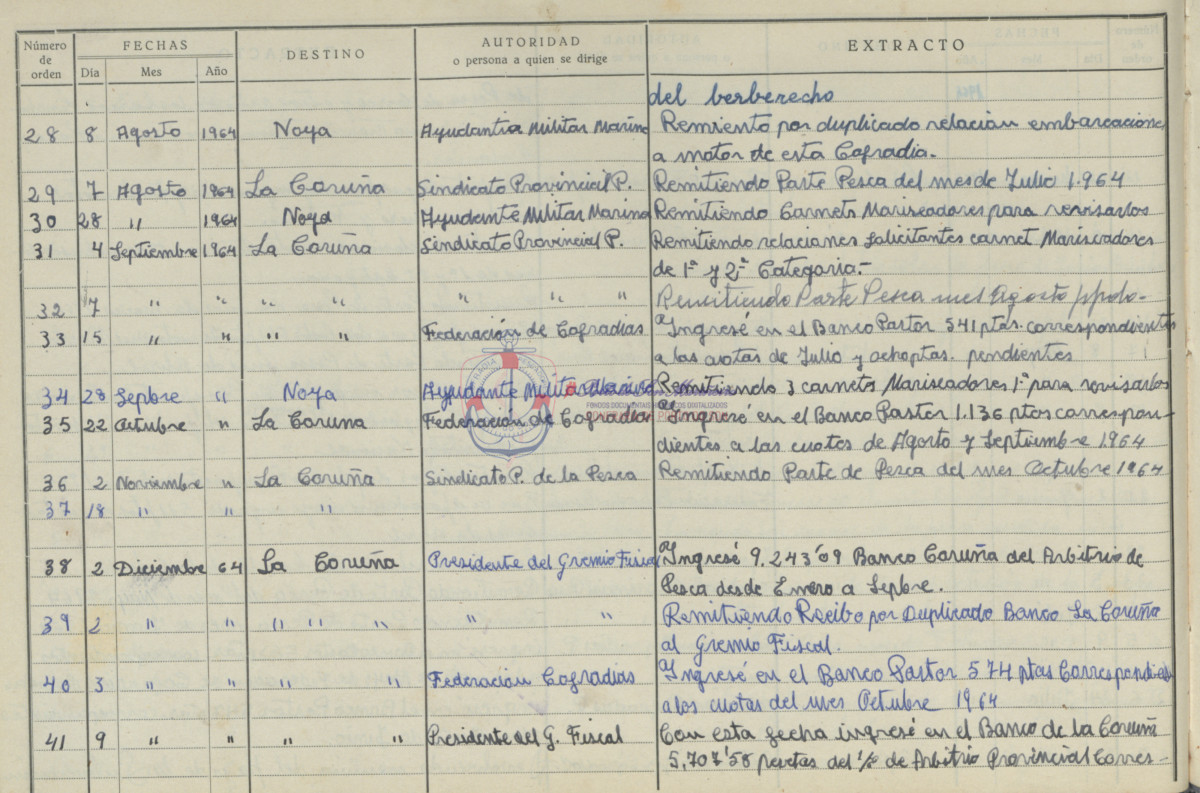 Número de orden FECHAS DESTINO AUTORIDAD o persona a quien se dirige EXTRACTO
Día Mes Año
del berberecho
28 8 Agosto 1964 Noya Ayudantia Militar Marina Remiento por duplicado relacian embarcacione
a motor de esta Cofradia.
29 7 Agosto 1964 La Coruña Sindicato Provincial P. Remitiendo Parte Pesca del mes de Julio 1.964
30 28 " 1964 Noya Ayudante Militar Marina Remitiendo Carnets Mariscadores para revisarlos
31 4 Septiembre 1964 La Coruña Sindicato Provincial P. Remitiendo relaciones solicitantes carnet Mariscadores
de 1ª y 2ª Categoria.-
32 7 " " " " " " " Remitiendo Parte Pesca mes Agosto ppdo-
33 15 " " " " Federación de Cofradias Ingresé en el Banco Pastor 541 ptas. correspondientes
a las cuotas de Julio y ocho ptas. pendientes
34 28 Sepbre " Noya Ayudante Militar Marina Remitiendo 3 carnets Mariscadores 1ª para revisarlos
FONDOS DOCUMENTAIS HISTÓRICOS DIGITALIZADOS
35 22 Octubre " La Coruna Federación de Cofradias Ingresé en el Banco Pastor 1.136 ptas correspon-
dientes a las cuotas de Agosto y Septiembre 1964
36 2 Noviembre " La Coruña Sindicato P. de la Pesca Remitiendo Parte de Pesca del mes Octubre 1964
37 18 " " "
38 2 Diciembre 64 La Coruña Presidente del Gremio Fiscal Ingresé 9.243'09 Banco Coruña del Arbitrio de
Pesca desde Enero a Sepbre.
39 2 " " " " " " " Remitiendo Recibo por Duplicado Banco La Coruña
al Gremio Fiscal.
40 3 " " " " Federación Cofradias Ingresé en el Banco Pastor 574 ptas Correspondien
a los cuotas del mes Octubre 1964
41 9 " " " " Presidente del G. Fiscal Con esta fecha ingresé en el Banco de la Coruña
5,707'58 pesetas del 1% de Arbitrio Provincial Corres-